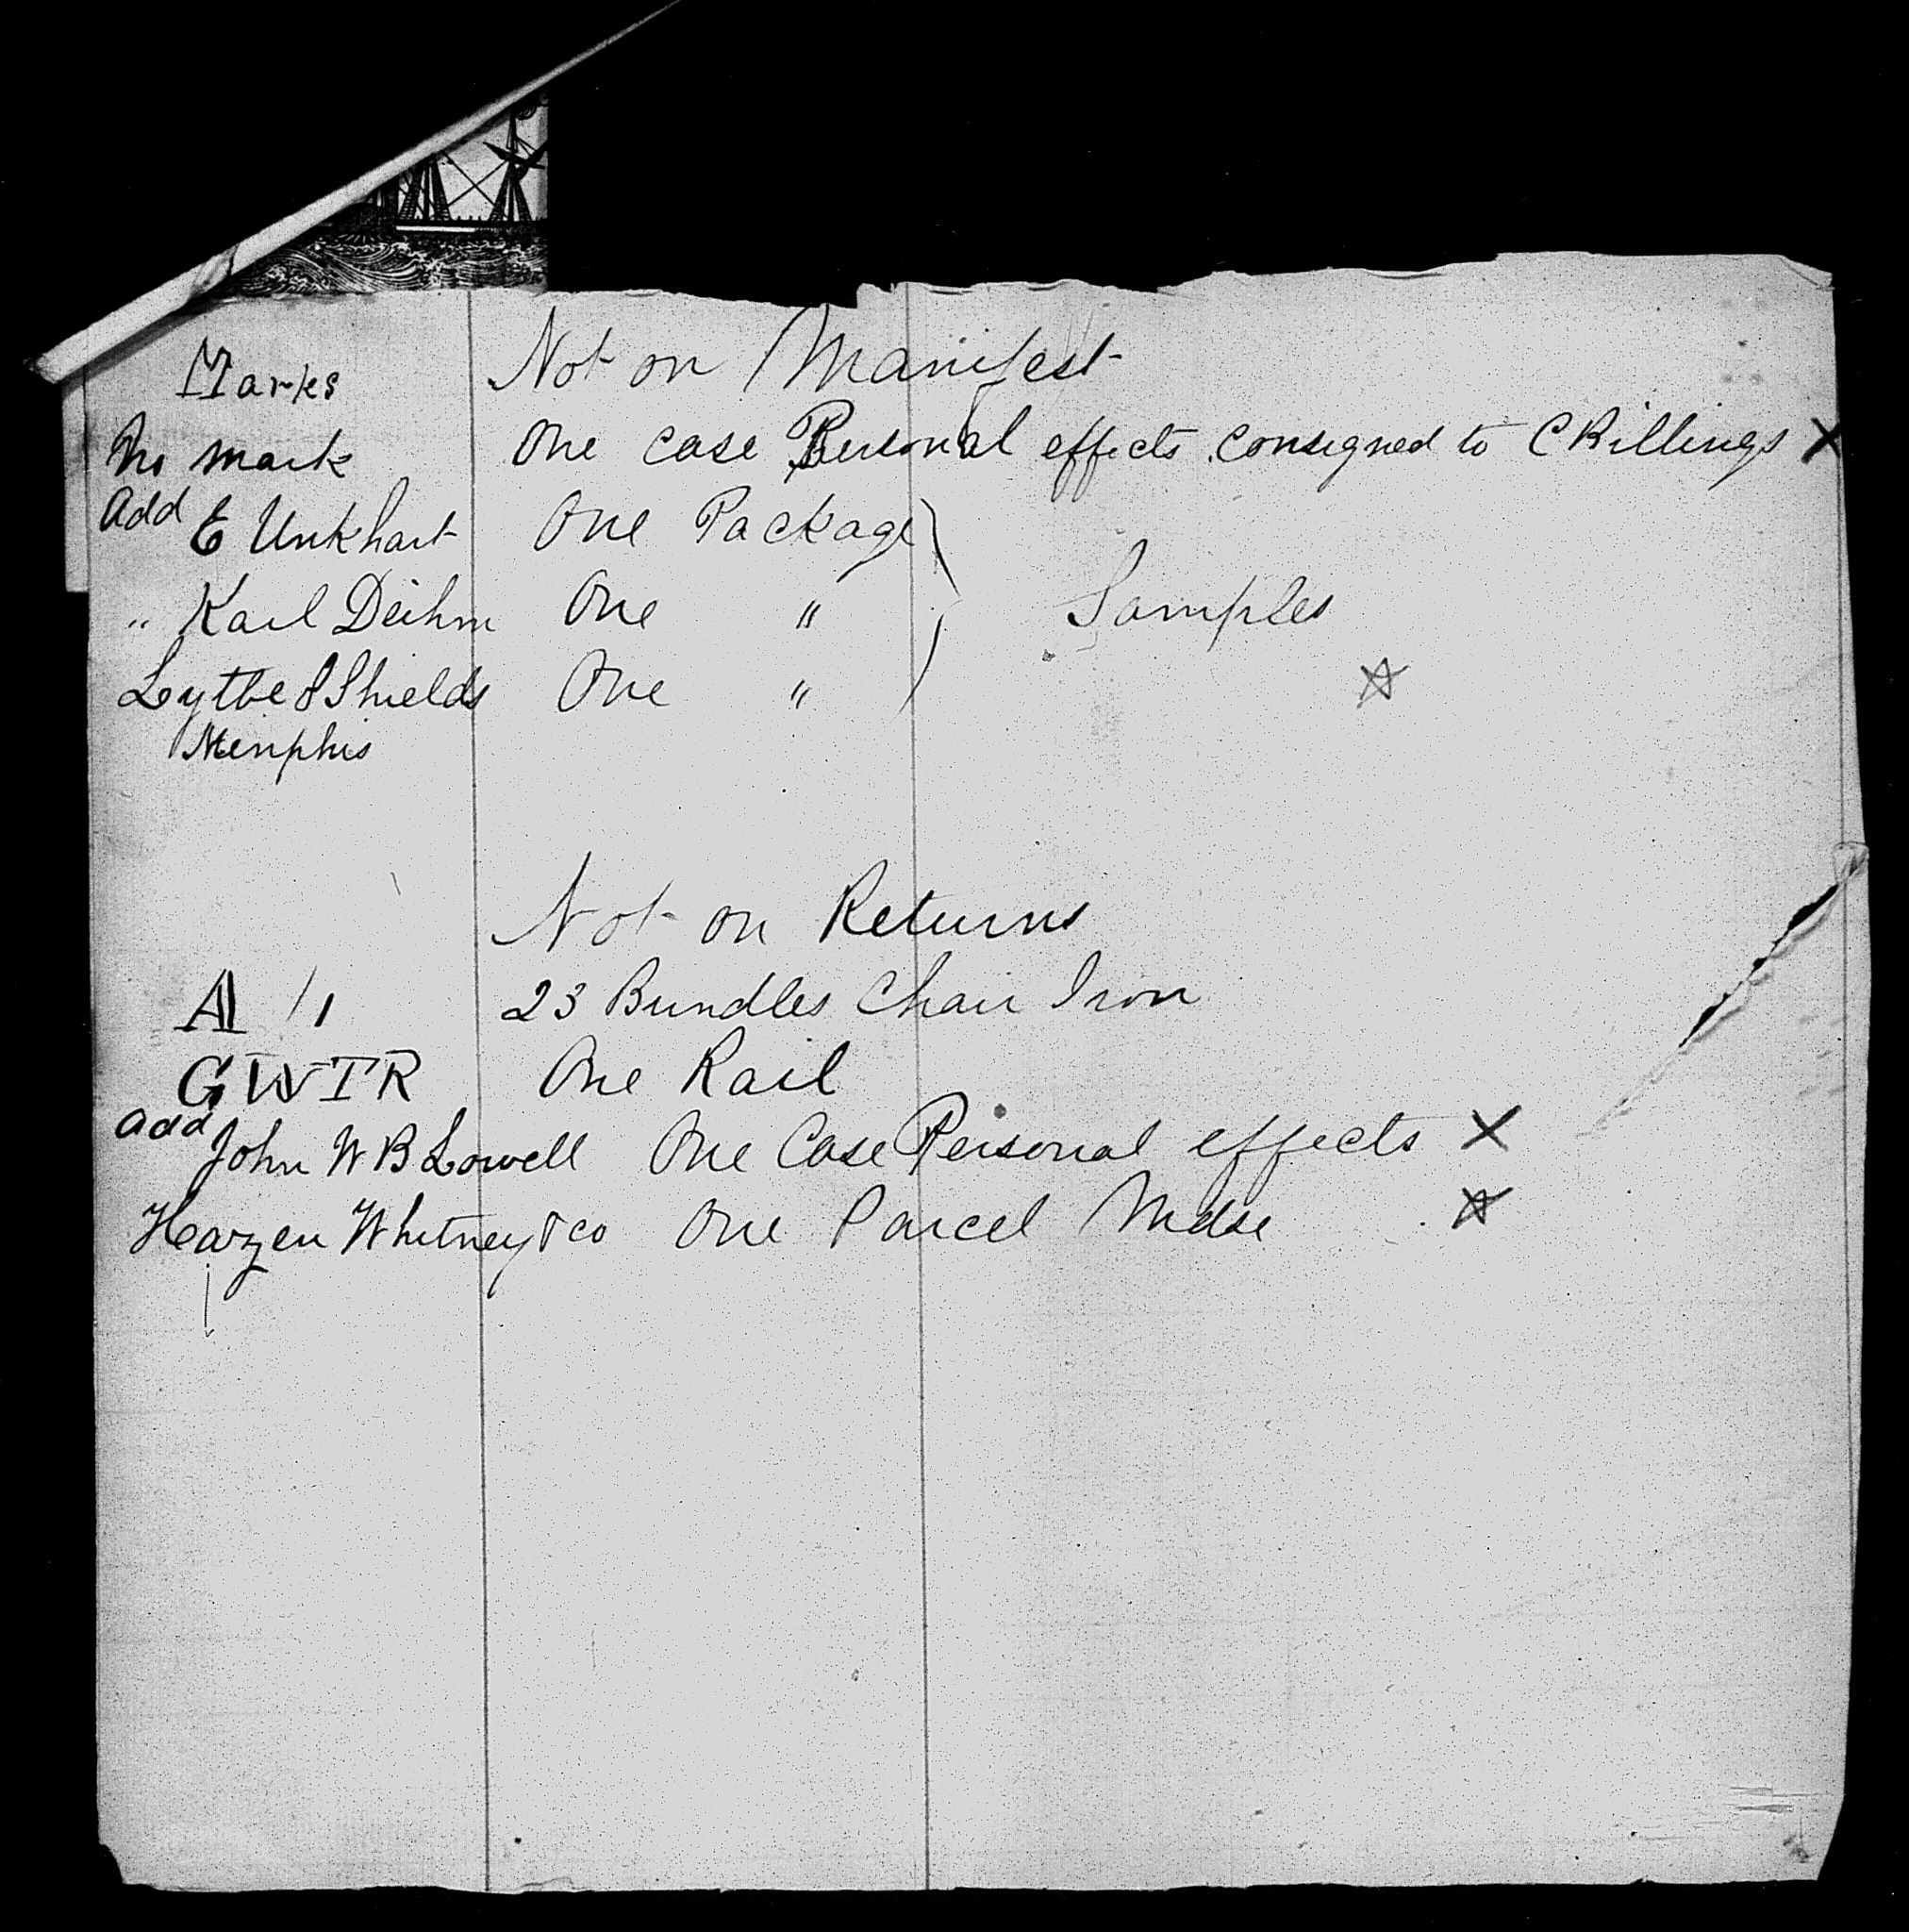 Marks Not on Manifest
No mark One case Personal effects consigned to C Billings X
Add E Unkhart One Package
" Karl Deihm One " Samples
Lythe & Shields One "
Memphis
Not on Returns
A 11 23 Bundles Chair Iron
GWTR One Rail
Add John W B Lowell One Case Personal effects X
Hazen Whitney & co One Parcel Mdse